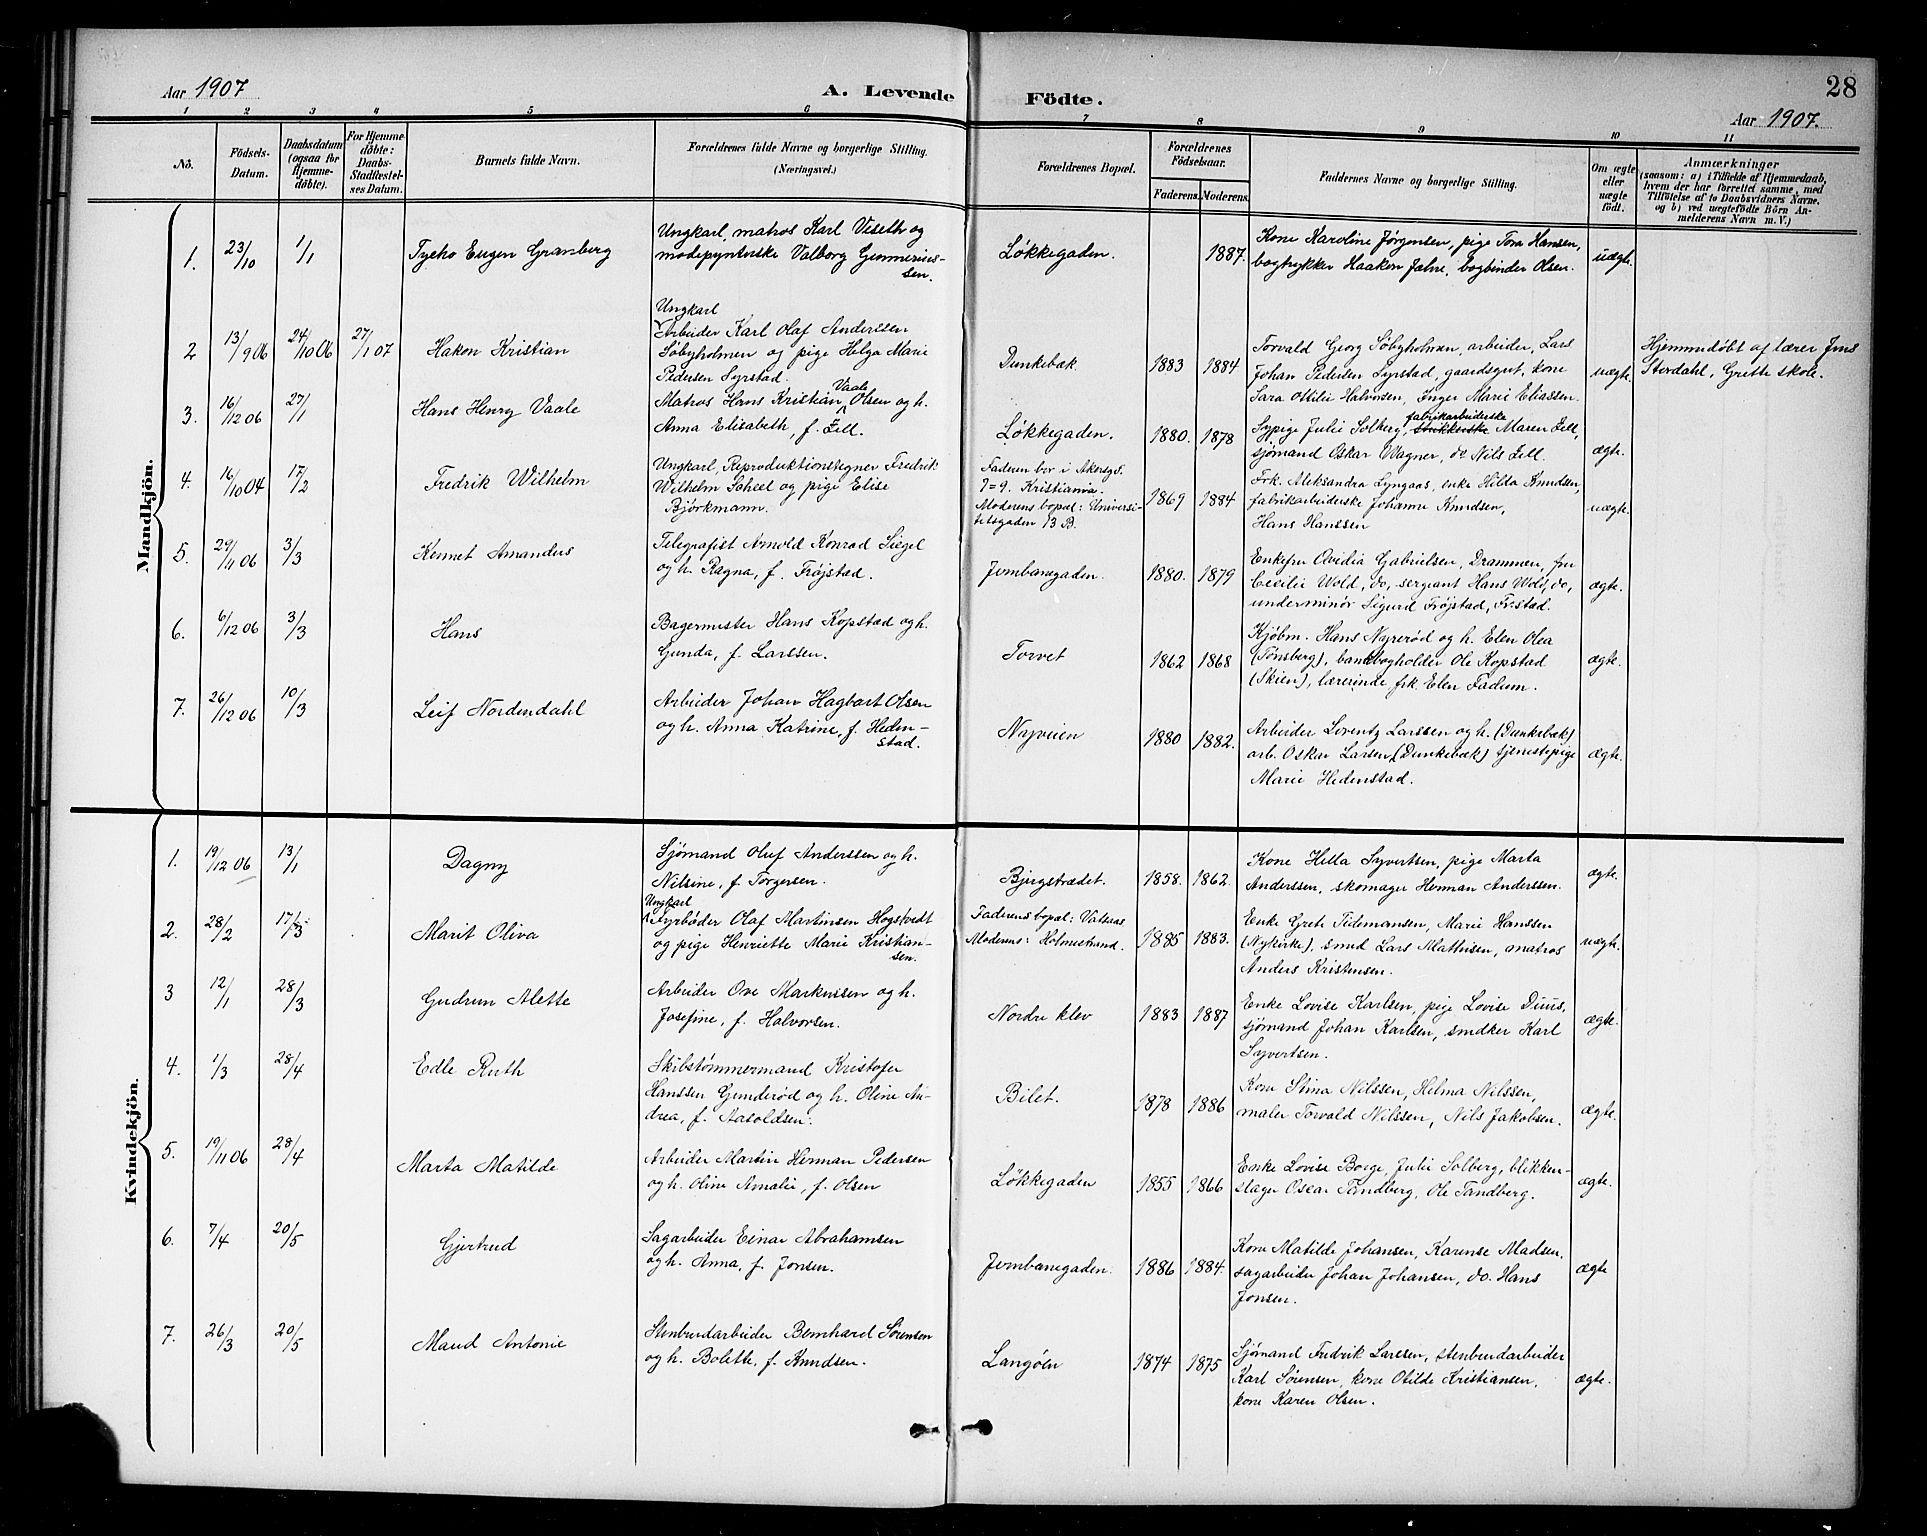 28
Aar 1907
A. Levende Födte.
Aar 1907.
1 2 3 4 5 6 7 8 9 10 11
No.
Födsels-Datum.
Daabsdatum (ogsaa for Hjemmedöbte).
For Hjemmedöbte: Daabs-Stadfestelses Datum.
Barnets fulde Navn.
Forældrenes fulde Navne og borgerlige Stilling. (Næringsvei.)
Forældrenes Bopæl.
Forældrenes Födselsaar.
Faderens. Moderens.
Faddernes Navne og borgerlige Stilling.
Om ægte eller uægte födt.
Anmærkninger
(saasom: a) i Tilfælde af Hjemmedaab, hvem der har forrettet samme, med Tilföielse af to Daabsvidners Navne, og b) ved uægtefödte Börn Anmelderens Navn m. V.)
Mandkjön.
1. 23/10 1/1 Tycho Eugen Gramberg
Ungkarl, matros Karl Viseth og
modepynterske Valborg Gunnerius-
sen.
Løkkegaden. 1887.
Kone Karoline Jørgensen, pige Tora Hansen,
bogtrykker Haaken Jahre, bogbinder Olsen.
uægte.
2 13/9 06 24/10 06 27/1 07 Hakon Kristian
Ungkarl
Arbeider Karl Olaf Anderssen
Søbyholmen og pige Helga Marie
Pedersen Syrstad.
Dunkebæk 1883 1884
Torvald Georg Søbyholmen, arbeider, Lars
Johan Pedersen Syrstad, gaardsgut, kone
Sara Otilie Halvorsen, Inger Marie Eliassen.
uægte.
Hjemmedøbt af lærer Jens
Stordahl, Grette skole.
3. 16/12 06 27/1 Hans Henry Vaale
Matros Hans Kristian Vaale Olsen og h.
Anna Elisabeth, f. Zell.
Løkkegaden. 1880. 1878
Sypige Julie Solberg, fabrikarbeiderske Maren Zell,
sjømand Oskar Wagner, do Nils Zell.
ægte.
4. 16/10 04 17/2 Fredrik Wilhelm
Ungkarl, Reproduktionstegner Fredrik
Wilhelm Saheel og pige Elise
Bjørkmann.
Faderen bor i Akersgd.
7=9. Kristiania.
Moderens bopæl: Universi-
tetsgaden 13 B.
1869 1884
Frk. Aleksandra Lyngaas, enke Hilda Knudsen,
fabrikarbeiderske Johanne Knudsen,
Hans Hanssen
uægte.
5. 29/11 06 3/3 Kennet Amandus
Telegrafist Arnold Konrad Siegel
og h. Ragna, f. Frøjstad.
Jernbanegaden. 1880. 1879
Enkefru Ovidia Gabrielsen, Drammen, fru
Cecilie Wold, do, sergeant Hans Wold, do,
underminør Sigurd Frøjstad, Fr.stad.
ægte.
6. 6/12 06 3/3 Hans
Bagermester Hans Kopstad og h.
Gunda, f. Larssen.
Torvet 1862 1868
Kjøbm. Hans Nyrerød og h. Elen Olea
(Tønsberg), bankbogholder Ole Kopstad
(Skien), lærerinde frk. Elen Fadum.
ægte.
7. 26/12 06 10/3 Leif Nordendahl
Arbeider Johan Hagbart Olsen
og h. Anna Katrine, f. Heden-
stad.
Nyveien 1880 1882.
Arbeider Lorentz Larssen og h. (Dunkebæk)
arb. Oskar Larsen (Dunkebæk) tjenestepige
Marie Hedenstad.
ægte.
Kvindekjön.
1. 19/12 06 13/1 Dagny
Sjømand Oluf Anderssen og h.
Nilsine, f. Torgersen.
Bjergstrædet. 1858. 1862.
Kone Hella Syvertsen, pige Marta
Anderssen, skomager Herman Anderssen.
ægte.
2. 28/2 17/3 Marit Oliva
Ungkarl
Fyrbøder Olaf Martinsen Hogstvedt
og pige Henriette Marie Kristian-
sen.
Faderens bopæl: Vataas
Moderens: Holmestrand.
1885 1883.
Enke Grete Tidemansen, Marie Hanssen
(Nykirke), smed Lars Mathisen, matros
Anders Kristensen.
uægte.
3 12/1 28/3 Gudrun Alette
Arbeider Ove Markussen og h.
Josefine, f. Halvorsen.
Nordre klev 1883 1887
Enke Lovise Karlsen, pige Lovise Duus,
sjømand Johan Karlsen, snedker Karl
Syvertsen.
ægte.
4. 1/3 28/4 Edle Ruth
Skibstømmermand Kristofer
Hanssen Gunderød og h. Oline An-
drea, f. Aasoldsen.
Bilet. 1878 1886
Kone Stina Nilssen, Helma Nilssen,
maler Torvald Nilssen, Nils Jakobsen.
ægte.
5. 19/11 06 28/4 Marta Matilde
Arbeider Martin Herman Pedersen
og h. Oline Amalie, f. Olsen
Løkkegaden 1855 1866
Enke Lovise Borge, Julie Solberg, blikken-
slager Oscar Tandberg, Ole Tandberg.
ægte.
6. 7/4 20/5 Gjertrud
Sagarbeider Einar Abrahamsen
og h. Anna, f. Jonsen.
Jernbanegaden. 1886 1884.
Kone Matilde Johansen, Karense Madsen,
sagarbeider Johan Johansen, do. Hans
Jonsen.
ægte
7. 26/3 20/5 Maud Antonie
Stenbrudarbeider Bernhard Sørensen
og h. Bolette, f. Knudsen.
Langøen 1874 1875
Sjømand Fredrik Larssen, stenbrudarbeider
Karl Sørensen, kone Otilde Kristiansen,
kone Karen Olsen.
ægte.